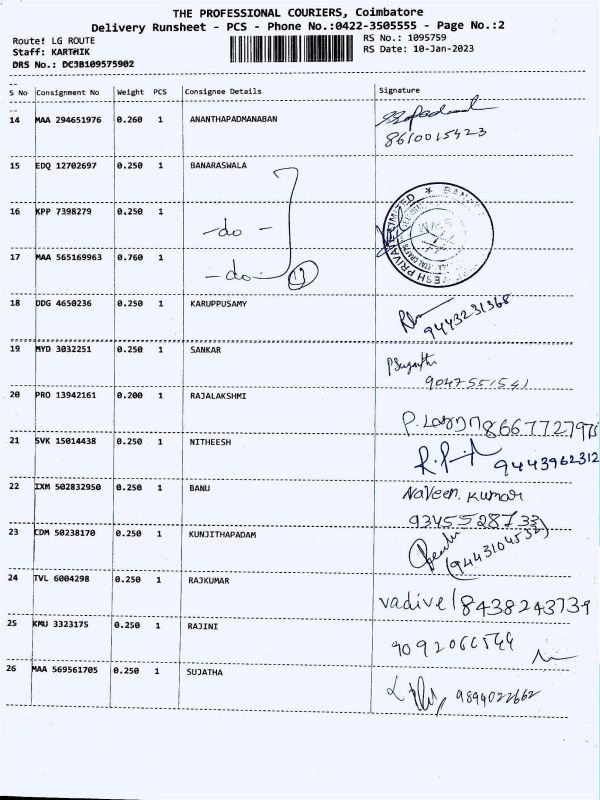 THE PROFESSIONAL COURIERS, Coimbatore
Delivery Runsheet - PCS - Phone No.:0422-3505555 - Page No.:2
Route: LG ROUTE
RS No.: 1095759
Staff: KARTHIK
RS Date: 10-Jan-2023
DRS No.: DC3B109575902
S No Consignment No Weight PCS Consignee Details Signature
14 MAA 294651976 0.260 1 ANANTHAPADMANABAN
8610015423
15 EDQ 12702697 0.250 1 BANARASWALA
16 KPP 7398279 0.250 1 -do-
17 MAA 565169963 0.760 1 -do-
18 DDG 4650236 0.250 1 KARUPPUSAMY
9443231368
19 MYD 3032251 0.250 1 SANKAR
9047551541
20 PRO 13942161 0.200 1 RAJALAKSHMI
21 SVK 15014438 0.250 1 NITHEESH
9443962312
22 IXM 502832950 0.250 1 BANU Naveen kumar
9345528733
23 CDM 50238170 0.250 1 KUNJITHAPADAM
(9443104532)
24 TVL 6004298 0.250 1 RAJKUMAR
vadivel 8438243739
25 KMU 3323175 0.250 1 RAJINI
26 MAA 569561705 0.250 1 SUJATHA
9894022662